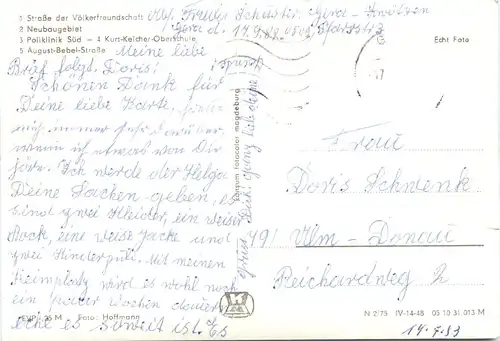 1 Straße der Völkerfreundschaft
2 Neubaugebiet
3 Poliklinik Süd — 4 Kurt-Kelcher-Oberschule
5 August-Bebel-Straße
Abs. Gera
Gera d. 14.9.83
Meine liebe
Brief folgt. Doris!
Schönen Dank für
Deine liebe Karte. freue
mich immer sehr darüber,
wenn ich etwas von Dir
höre. Ich werde der Helga
Deine Sachen geben, es
sind zwei Kleider, ein weiser
Rock, eine weise Jacke und
zwei Kinderpuli. Mit meinen
Heimplatz wird es wohl noch
ein paar Wochen dauern
ehe es soweit ist. Es
grüßt Dich ganz lieb deine
Echt Foto
Frau
Doris Schwenk
791 Ulm-Donau
Reichardweg 2
EVP 25 M Foto: Hoffmann
N 2/79 IV-14-48 05 10 31 013 M
14.9.83